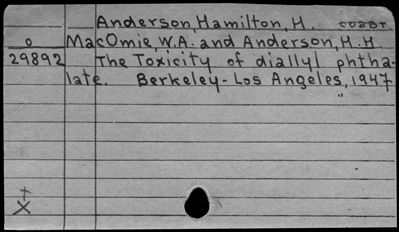 Anderson, Hamilton, H. соавт.
o MacOmie, W.A. and Anderson, H.H.
29892 The Toxicity of diallyl phtha-
late. Berkeley-Los Angeles, 1947
"
+
X